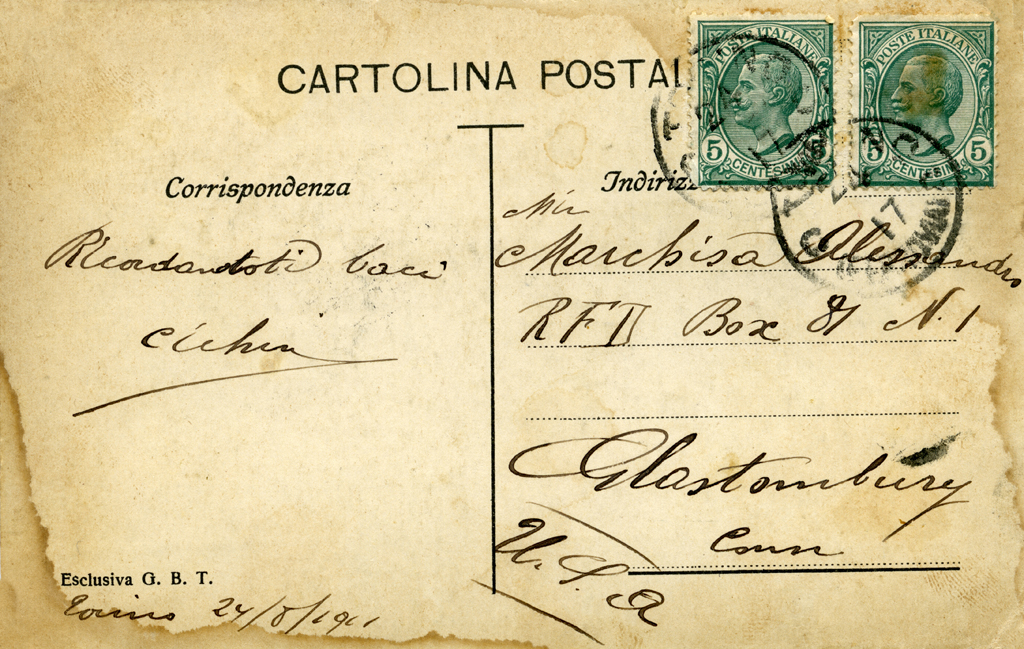 CARTOLINA POSTAL
POSTE ITALIANE
5 CENTESIMI 5
POSTE ITALIANE
5 CENTESIMI 5
Corrispondenza
Ricordandoti baci
Indirizz
Mir
Marchisa Alessandro
RFD Box 81 N. 1
Glastombury
Conn
U.S.A
Esclusiva G. B. T.
Torino 24/8/1911